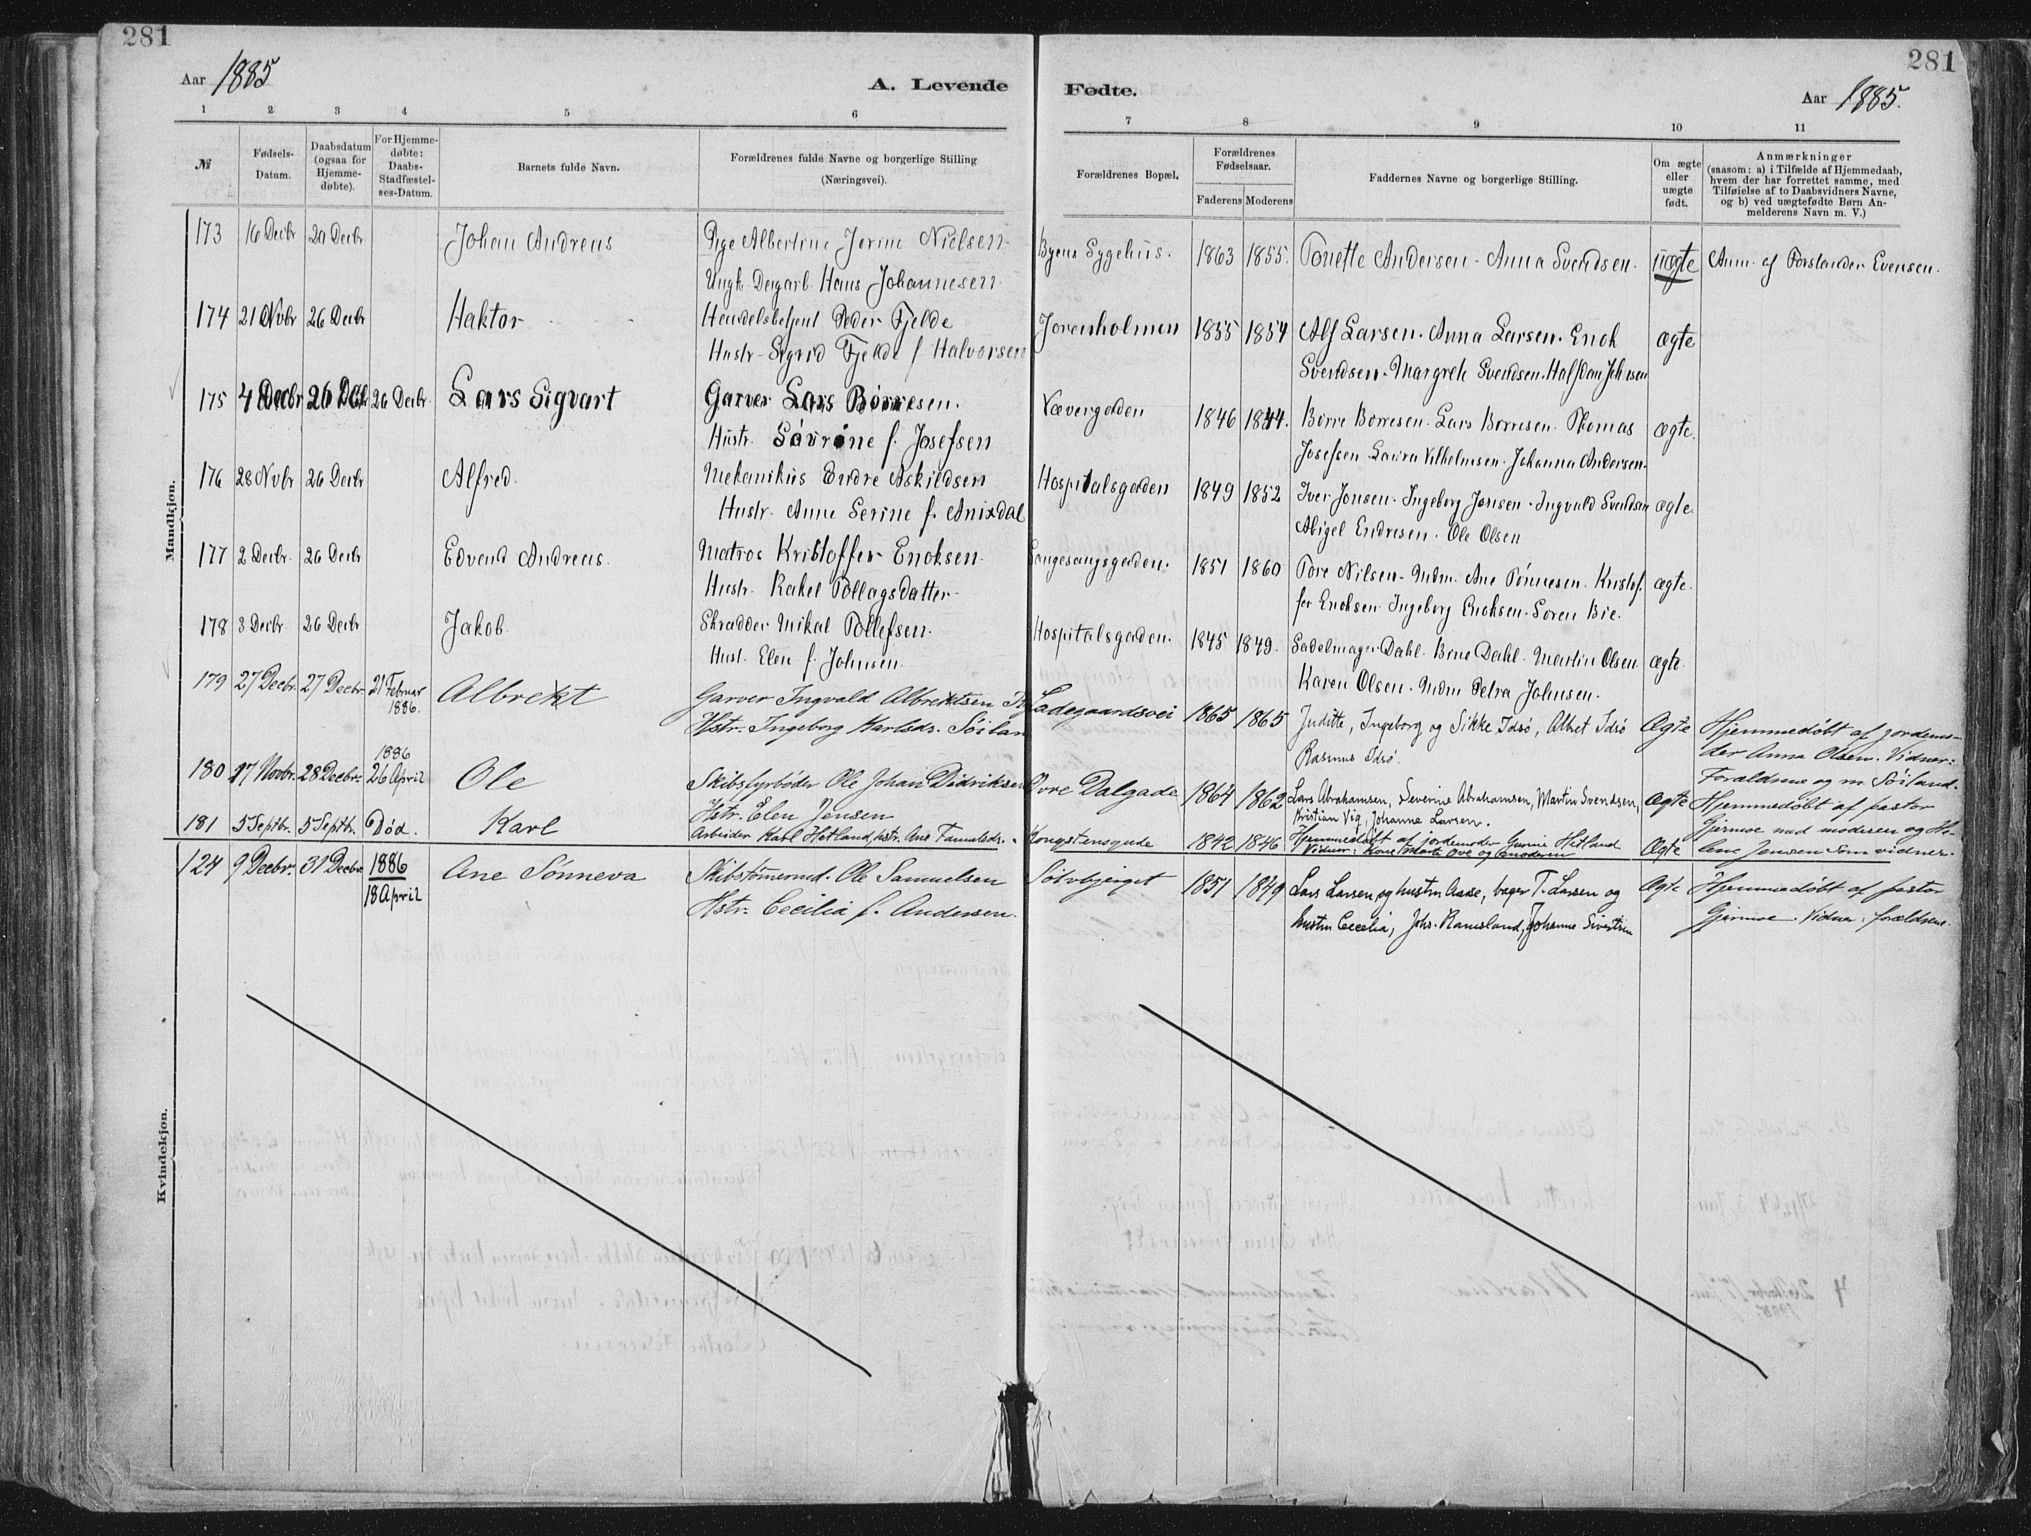 281
Aar 1885
A. Levende
Fødte.
Aar 1885.
281
1 2 3 4 5 6 7 8 9 10 11
№
Fødsels-Datum.
Daabsdatum (ogsaa for Hjemmedøbte).
For Hjemmedøbte: Daabs-Stadfæstelses-Datum.
Barnets fulde Navn.
Forældrenes fulde Navne og borgerlige Stilling (Næringsvei).
Forældrenes Bopæl.
Forældrenes Fødselsaar.
Faderens Moderens
Faddernes Navne og borgerlige Stilling.
Om ægte eller uægte født.
Anmærkninger
(saasom: a) i Tilfælde af Hjemmedaab, hvem der har forrettet samme, med Tilføielse af to Daabsvidners Navne, og b) ved uægtefødte Børn Anmelderens Navn m. V.)
Mandkjøn.
173 16 Decbr 20 Decbr Johan Andreas Pige Albertine Jorine Nielsen Byens Sygehus. 1863 1855. Tonette Andersen - Anna Svendsen. uægte Anm. af Forstander Evensen.
Ungk. Dagarb. Hans Johannesen
174 21 Novbr 26 Decbr Haktor Handelsbetjent Peder Fjelde Jorenholmen 1855 1854 Alf Larsen. Anna Larsen. Enok ægte
Hustr. Sigrid Fjelde f. Halvorsen Svendsen. Margrete Svendsen. Halfdan Johnsen
175 4 Decbr 26 Decbr 26 Decbr. Lars Sigvart Garver Lars Børresen. Vævergaden 1846 1844. Børre Børresen. Lars Børresen. Thomas ægte.
Hustr. Søvrine f. Josefsen Josefsen Laura Vilhelmsen. Johanna Andersen.
176 28 Nvbr 26 Decbr Alfred. Mekanikus Endre Askildsen Hospitalsgaden 1849 1852 Iver Jonsen. Ingeborg Jonsen. Ingvald Svendsen ægte.
Hustr. Anne Serine f. Anixdal Abigel Endresen. Ole Olsen
177 2 Decbr. 26 Decbr Edvard Andreas. Matros Kristoffer Enoksen. Langesangsgaden. 1851 1860 Tore Nilsen. Mdm. Ane Tønnesen. Kristof- ægte.
Hustr. Rakel Tollagsdatter. fer Enoksen. Ingeborg Enoksen. Søren Bie.
178 3 Decbr 26 Decbr Jakob. Skrædder Mikal Tollefsen. Hospitalsgaden. 1845 1849. Sadelmager Dahl. Brne Dahl. Martin Olsen. ægte.
Hust. Elen f. Johnsen. Karen Olsen. Mdm Petra Johnsen.
179 27 Decbr. 27 Decbr. 21 Februar 1886. Albrekt Garver Ingvald Albrektsen Ladegaardsvei 1865 1865 Juditte, Ingeborg og Sikke Idsø, Albret Idsø Ægte Hjemmedøbt af jordemo-
Hstr. Ingeborg Karlsdr. Søiland Rasmus Idsø. der Anna Olsen. Vidner:
Forældrene og m. Søiland.
180 17 Novbr. 28 Decbr. 1886 26 April Ole Skibsfyrbøder Ole Johan Didriksen Øvre Dalgade 1864 1862 Lars Abrahamsen, Severine Abrahamsen, Martin Svendsen, Ægte Hjemmedøbt af pastor
Hstr. Elen Jensen Kristian Vig, Johanne Larsen. Gjermoe med moderen og He-
lene Jensen som vidner.
181 5 Septbr. 5 Septbr. Død. Karl Arbeider Karl Hetland, hstr. Ane Kongstensgade 1842 1846 Hjemmedøbt af jordemoder Gurine Hetland Ægte
Vidner: Kone Marte Ove og Moderen
Kvindekjøn.
124 9 Decbr. 31 Decbr. 1886 18 April Ane Sønneva Skibstømrmd. Ole Samuelsen Sølvbjerget 1851 1849 Lars Larsen og hustru Aase, bager T. Larsen og Ægte Hjemmedøbt af pastor
Hstr. Cecilia f. Andersen. hustru Cecelia, Johs. Ramsland, Johanne Sivertsen Gjermoe. Vidner: forældrene.